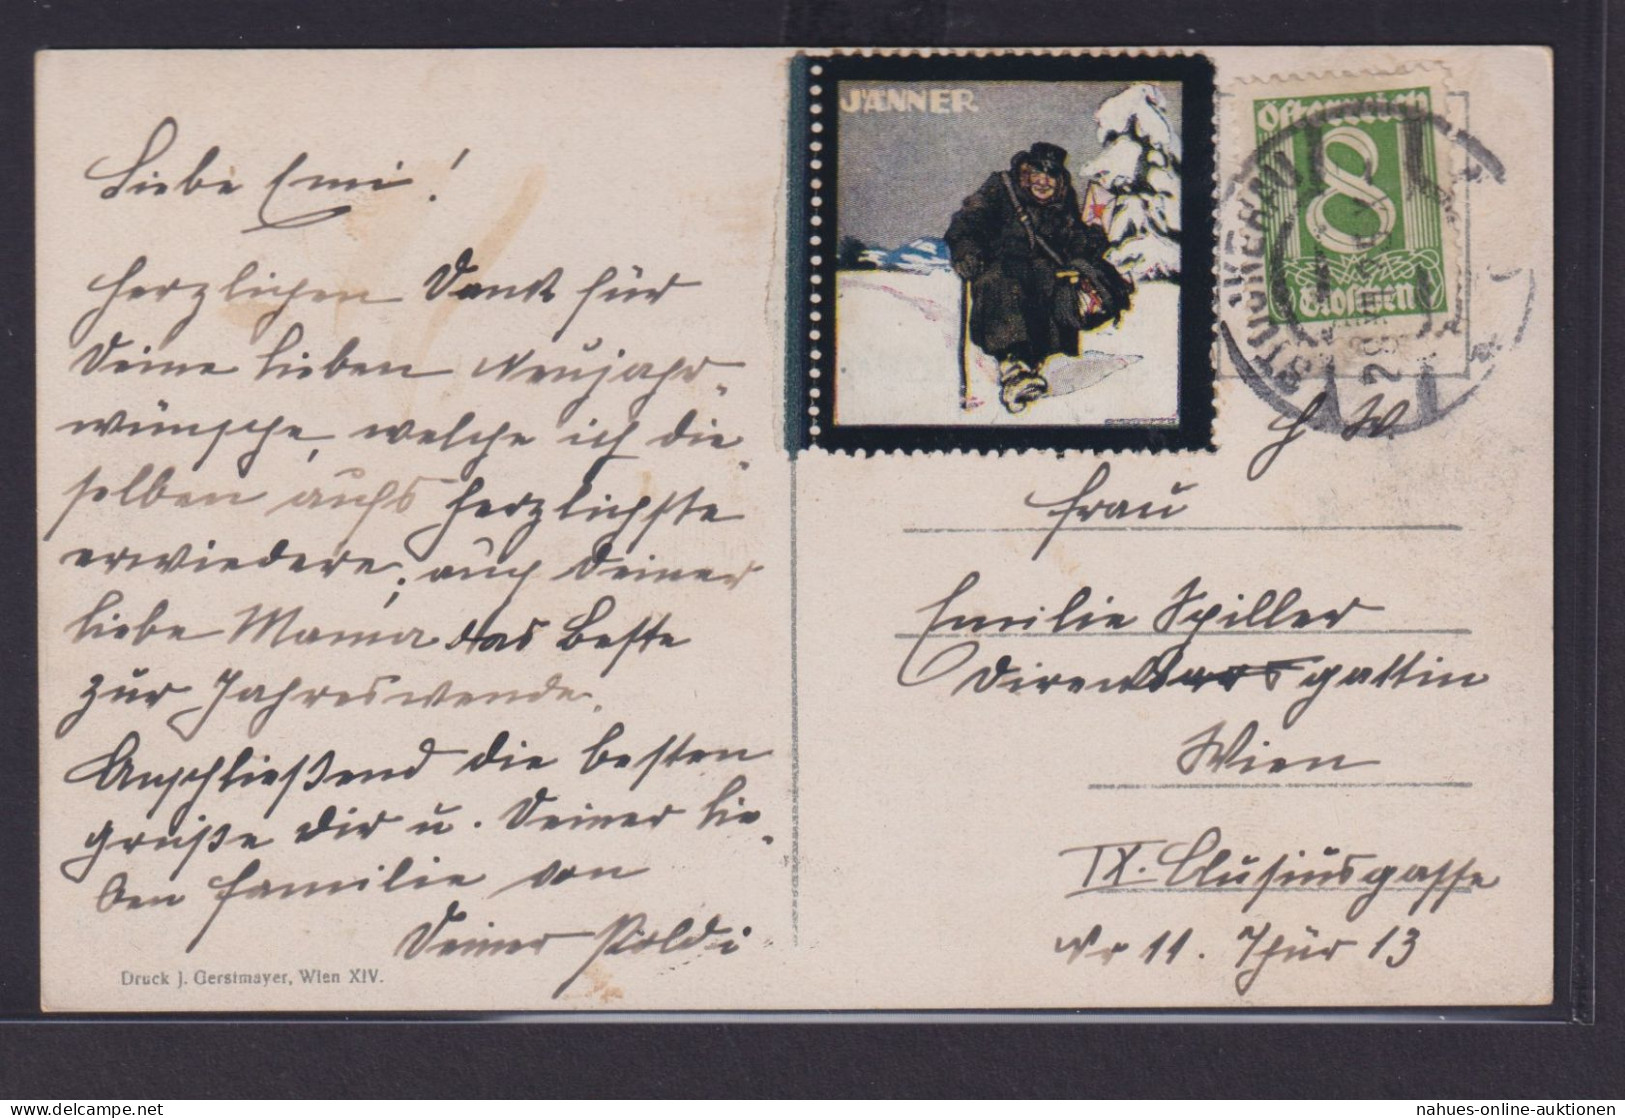 Liebe Emi!
Herzlichen Dank für
Deine lieben Neujahr-
wünsche, welche ich die-
selben aufs herzlichste
erwiedere, auch Deiner
liebe Mama das Beste
zur Jahreswende.
Anschließend die besten
grüße Dir u. Deiner lie-
ben Familie von
Deiner Poldi
Druck J. Gerstmayer, Wien XIV.
JÄNNER
Österreich
8
Groschen
STOCKERAU
H W.
Frau
Emilie Spiller
gattin
Wien
IX. Clusiusgasse
Nr 11. Thür 13
nahues-online-auktionen